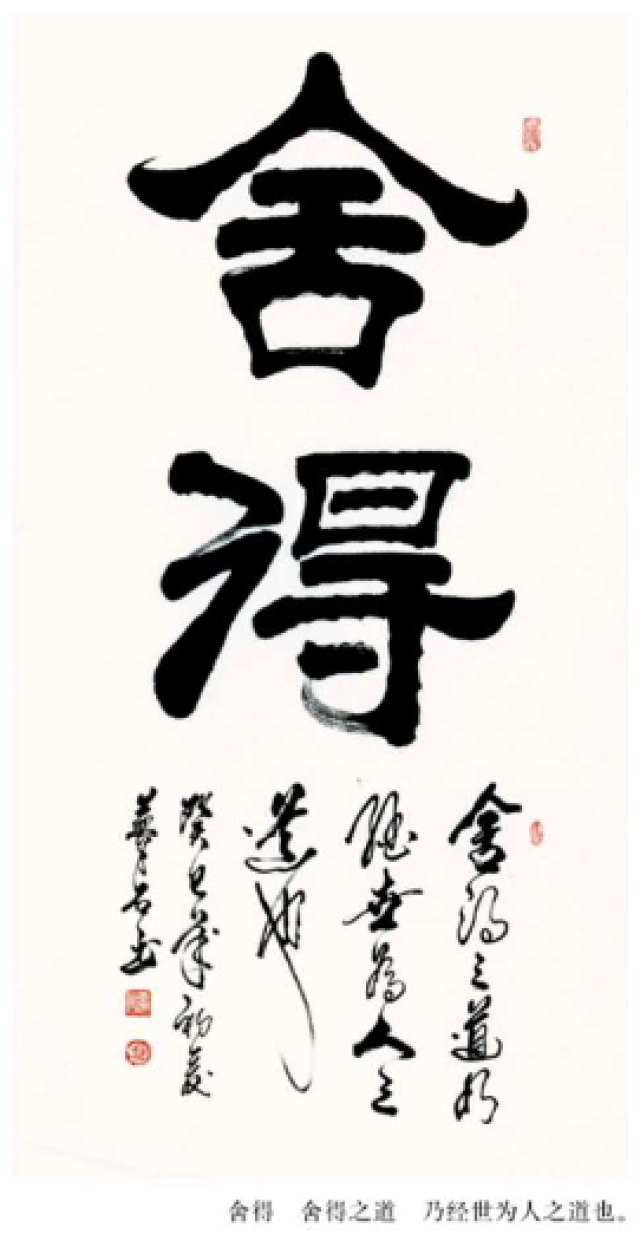 舍
得
舍得之道乃
經世為人之
道也
癸巳年初夏
舍得　舍得之道　乃经世为人之道也。